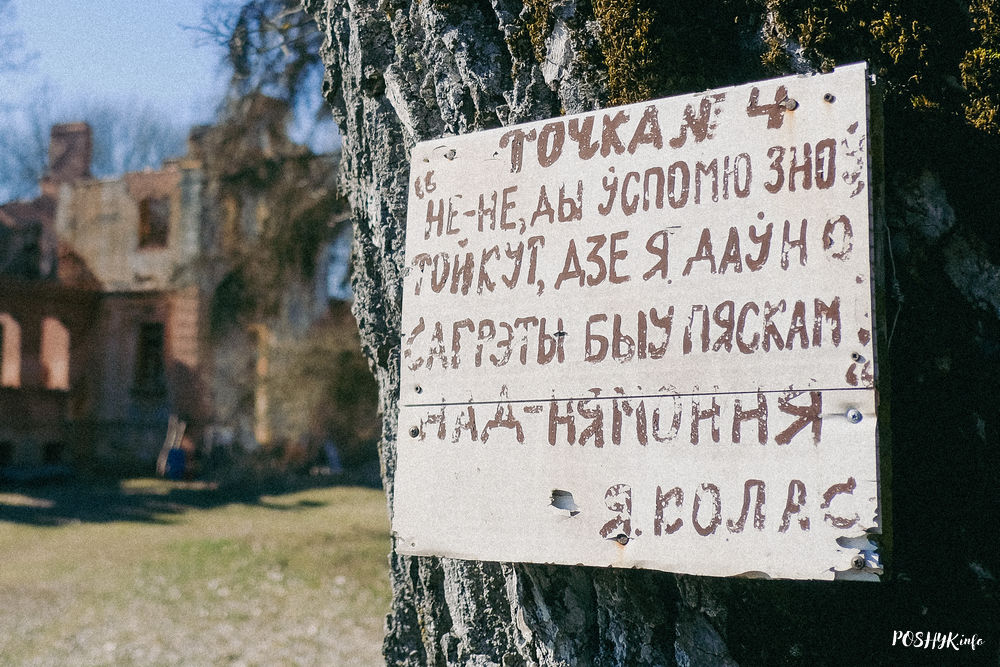 ТОЧКА № 4
“НЕ-НЕ, ДЫ ЎСПОМЮ ЗНОЎ
ТОЙ КУТ, ДЗЕ Я ДАЎНО
САГРЭТЫ БЫЎ ПЯСКАМ.
НАД-НЯМОННЯ”
Я. КОЛАС
POSHYK.info